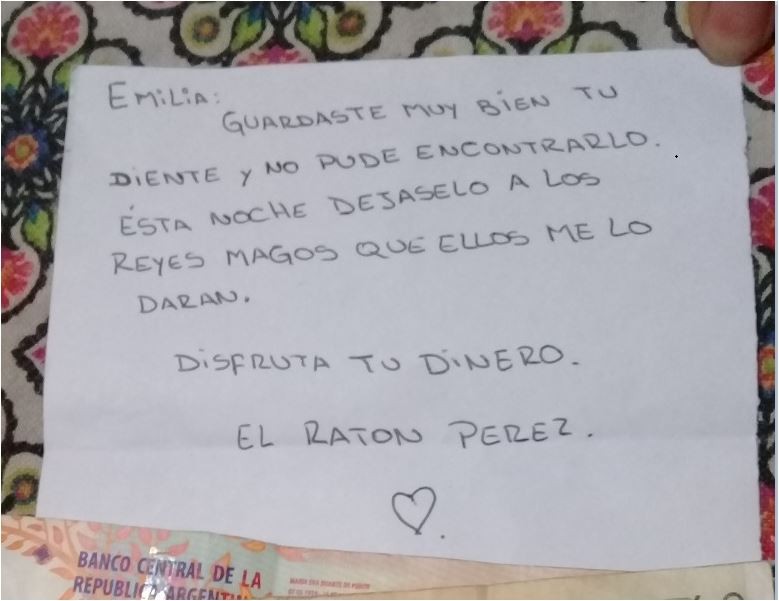 EMILIA:
GUARDASTE MUY BIEN TU
DIENTE Y NO PUDE ENCONTRARLO.
ÉSTA NOCHE DEJASELO A LOS
REYES MAGOS QUE ELLOS ME LO
DARAN.
DISFRUTA TU DINERO.
EL RATON PEREZ.
BANCO CENTRAL DE LA
REPUBLICA ARGENTI
MARIA EVA DUARTE DE PERON